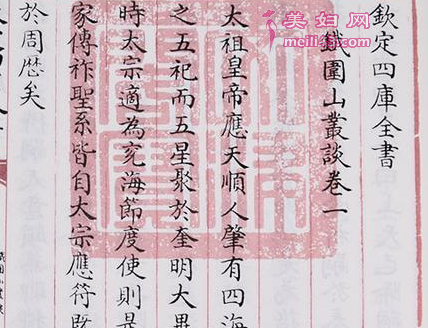 美妇网
meili43.com
欽定四庫全書
鐵圍山叢談卷一
太祖皇帝應天順人肇有四海
之五祀而五星聚於奎明大異
時太宗適為兗海節度使則是
家傳祚聖系皆自太宗應符既
於周歴矣